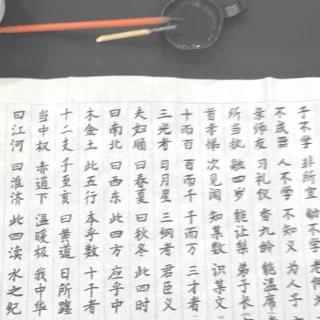 子不学 非所宜 幼不学 老何
不成器 人不学 不知义 为人子
亲师友 习礼仪 香九龄 能温席
所当执 融四岁 能让梨 弟子长
首孝悌 次见闻 知某数 识某文
十而百 百而千 千而万 三才者
三光者 日月星 三纲者 君臣义
夫妇顺 曰春夏 曰秋冬 此四时
曰南北 曰西东 此四方 应乎中
木金土 此五行 本乎数 十干者
十二支 子至亥 曰黄道 日所躔
当中权 赤道下 温暖极 我中华
曰江河 曰淮济 此四渎 水之纪